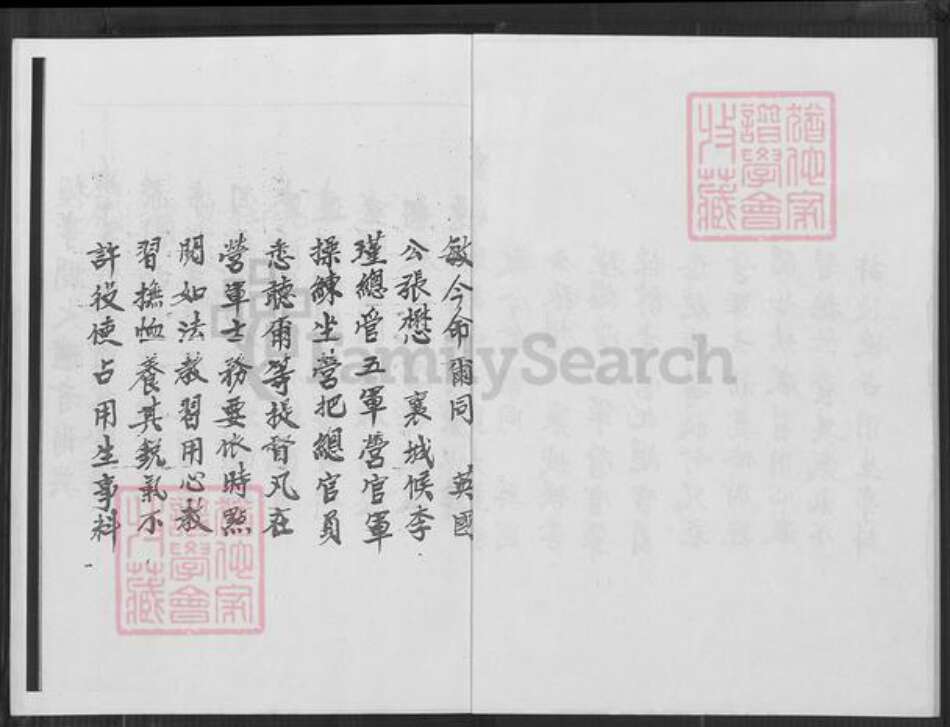 敏今命爾同　英國
公張懋　襄城候李
瑾總管五軍營官軍
操練坐營把總官員
悉聽爾等提督凡在
營軍士務要依時點
閱如法教習用心教
習撫恤養其銳氣不
許役使占用生事科
FamilySearch
譜學會
收藏
譜學會
收藏